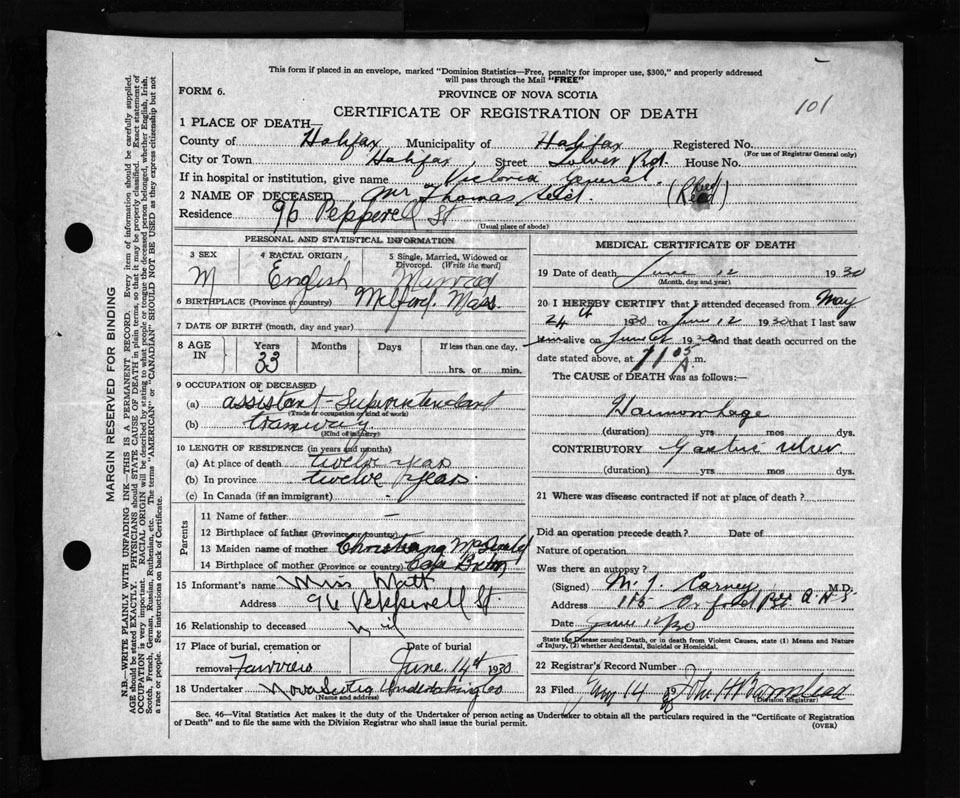 This form if placed in an envelope, marked "Dominion Statistics—Free, penalty for improper use, $300," and properly addressed
will pass through the Mail "FREE"
FORM 6.
PROVINCE OF NOVA SCOTIA
101
CERTIFICATE OF REGISTRATION OF DEATH
1 PLACE OF DEATH—
County of Halifax Municipality of Halifax Registered No.
(For use of Registrar General only)
City or Town Halifax Street Rd. House No.
If in hospital or institution, give name Victoria General.
2 NAME OF DECEASED Mr Thomas (Reed)
Residence 96 Pepperell St
(Usual place of abode)
PERSONAL AND STATISTICAL INFORMATION
3 SEX M
4 RACIAL ORIGIN English
5 Single, Married, Widowed or Divorced. (Write the word) Married
6 BIRTHPLACE (Province or country) Milford. Mass.
7 DATE OF BIRTH (month, day and year)
8 AGE IN Years Months Days If less than one day.
33 hrs. or min.
9 OCCUPATION OF DECEASED
(a) assistant-Superintendant
(Trade or occupation or kind of work)
(b) tramway.
(Kind of industry)
10 LENGTH OF RESIDENCE (in years and months)
(a) At place of death twelve years
(b) In province twelve years.
(c) In Canada (if an immigrant) -
Parents
11 Name of father —
12 Birthplace of father (Province or country)
13 Maiden name of mother
14 Birthplace of mother (Province or country) Cape Breton
15 Informant's name Miss Matt
Address 96 Pepperell St.
16 Relationship to deceased nil
17 Place of burial, cremation or removal Fairview
Date of burial June 14th 1930
18 Undertaker Nova Scotia Undertaking Co
(Name and address)
MEDICAL CERTIFICATE OF DEATH
19 Date of death June 12 1930
(Month, day and year)
20 I HEREBY CERTIFY that I attended deceased from May
24th 1930 to June 12 1930 that I last saw
alive on June 1930 and that death occurred on the
date stated above, at 1105 A.m.
The CAUSE of DEATH was as follows:—
Haemorrhage
(duration) yrs mos. dys.
CONTRIBUTORY Gastric ulcer
(duration) yrs. mos. dys.
21 Where was disease contracted if not at place of death?
Did an operation precede death? Date of
Nature of operation
Was there an autopsy?
(Signed) M. J. Carney M.D.
Address 115 Oxford
Date June 12/30
State the Disease causing Death, or in death from Violent Causes, state (1) Means and Nature
of Injury, (2) whether Accidental, Suicidal or Homicidal.
22 Registrar's Record Number
23 Filed 14 John H
(Division Registrar)
Sec. 46—Vital Statistics Act makes it the duty of the Undertaker or person acting as Undertaker to obtain all the particulars required in the "Certificate of Registration
of Death" and to file the same with the Division Registrar who shall issue the burial permit.
(OVER)
MARGIN RESERVED FOR BINDING
N.B.—WRITE PLAINLY WITH UNFADING INK—THIS IS A PERMANENT RECORD. Every item of information should be carefully supplied.
AGE should be stated EXACTLY. PHYSICIANS should STATE CAUSE OF DEATH in plain terms, so that it may be properly classified. Exact statement of
OCCUPATION is very important. RACIAL ORIGIN will be described by stating to what people or tongue the deceased person belonged, whether English, Irish,
Scotch, French, German, Russian, Ruthenian, etc. The terms "AMERICAN" or "CANADIAN" SHOULD NOT BE USED as they express citizenship but not
a race or people. See instructions on back of Certificate.